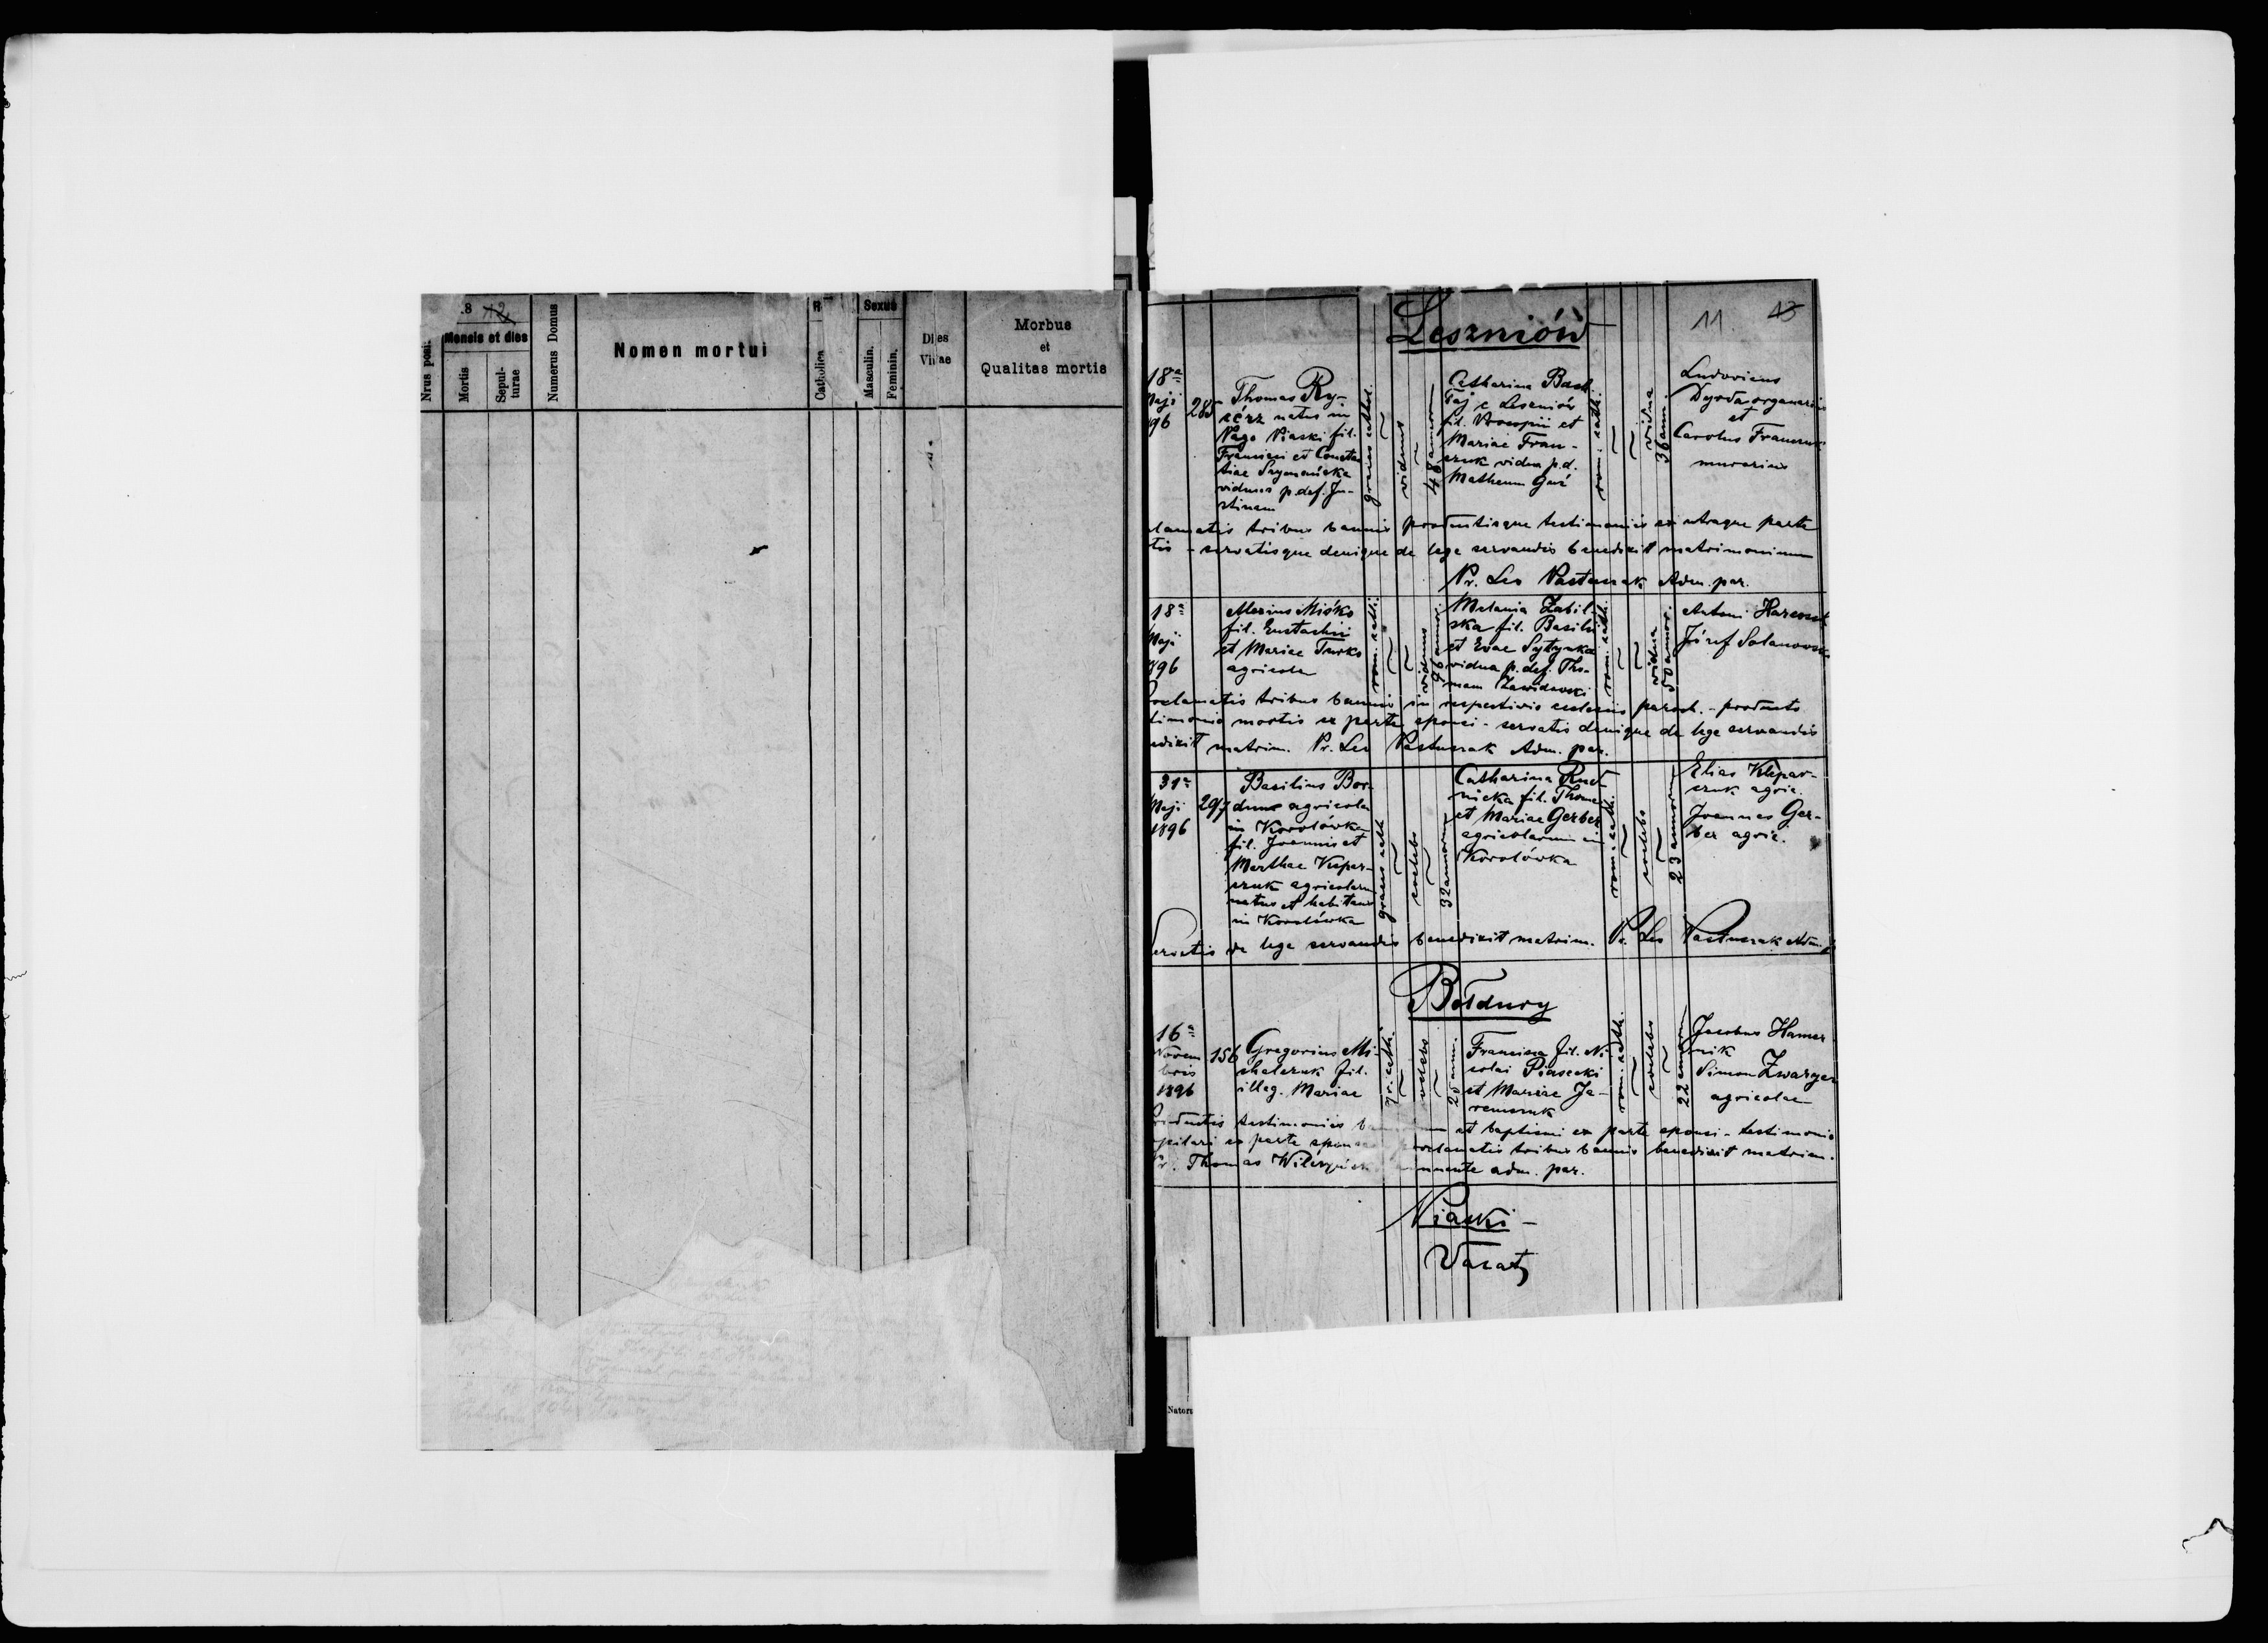 .8 12
Mensis et dies
Nrus posi.
Mortis
Sepul-
turae
Numerus Domus
Nomen mortui
R
Catholica
Sexus
Masculin.
Feminin.
Dies
Vitae
Morbus
et
Qualitas mortis
Leszniów
11. 13
18ª
Maji
96
285
Thomas Ry-
cérz natus in
Pago Piaski fil.
Francisci et Constan
tiae Szymańska
viduus p. def. Ju-
stinam
graeco cathol.
viduus
48 annorum
Catharina Bach
Taj e Leszniów
fil. Procopii et
Mariae Fran-
czuk vidua p.d.
Matheum Guź
rom. cath.
vidua
36 ann.
Ludovicus
Dyrda organarius
et
Carolus
murarius
clamatis tribus bannis productisque testimoniis ex utraque parte
tis - servatisque denique de lege servandis benedixit matrimonium
Pr. Leo Pastuszak Adm. par.
18ª
Maji
1896
Alexius Miśko
fil. Eustachii
et Mariae Turko
agricola
rom. cath.
viduus
annor.
Melania Zabil-
ska fil. Basilii
et Evae
vidua p. def. Tho-
mam Zawidowski
rom. cath.
vidua
50 annor.
Antoni
Józef
roclamatis tribus bannis in respectivis ecclesiis paroch. - producto
timonio mortis ex parte sponsi - servatis denique de lege servandis
edixit matrim. Pr. Leo Pastuszak Adm. par.
31ª
Maji
1896
297
Basilius Bor-
dun agricola
in Korolówka
fil. Joannis et
Marthae Klepar-
czuk agricolarum
natus et habitans
in Korolówka
graeco cath
coelebs
32 annorum
Catharina Rud-
nicka fil. Thomae
et Mariae Gerber
agricolarum in
Korolówka
rom. cath.
coelebs
23 annorum
Elias Klepar-
czuk agric.
Joannes Ger-
ber agric.
Servatis de lege servandis benedixit matrim. Pr. Leo Pastuszak Adm. p
Bołdury
16ª
Novem
bris
1896
156
Gregorius Mi-
chalczuk fil.
illeg. Mariae
gr. cath.
coelebs
25 ann.
Francisca fil. Ni-
colai Piasecki
et Mariae Ja-
remczuk
rom. cath.
coelebs
22 annorum
Jacobus Hamer
nik
Simon Zwarycz
agricolae
Productis testimoniis et baptismi ex parte sponsi - testimonio
ex parte sponsae proclamatis tribus bannis benedixit matrim.
Pr. Thomas annuente adm. par.
Piaski -
Vacat
Nator